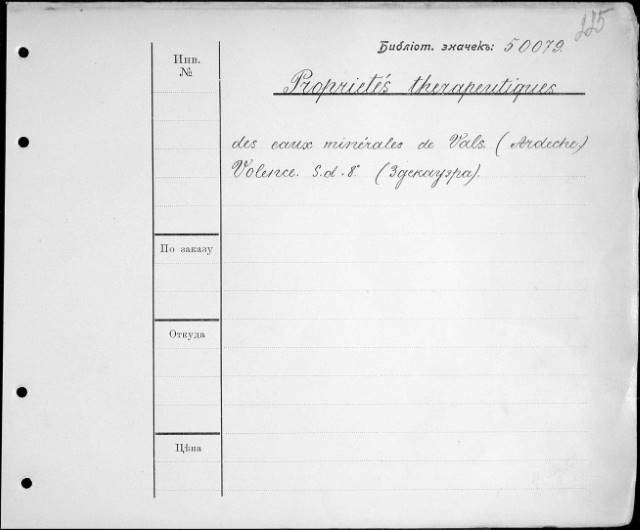 225
Библіот. значекъ: 50079.
Инв.
№
Proprietés therapeutiques
des eaux minérales de Vals. (Ardeche)
Volence. S.d - 8°. (Здекауэра).
По заказу
Откуда
Цѣна